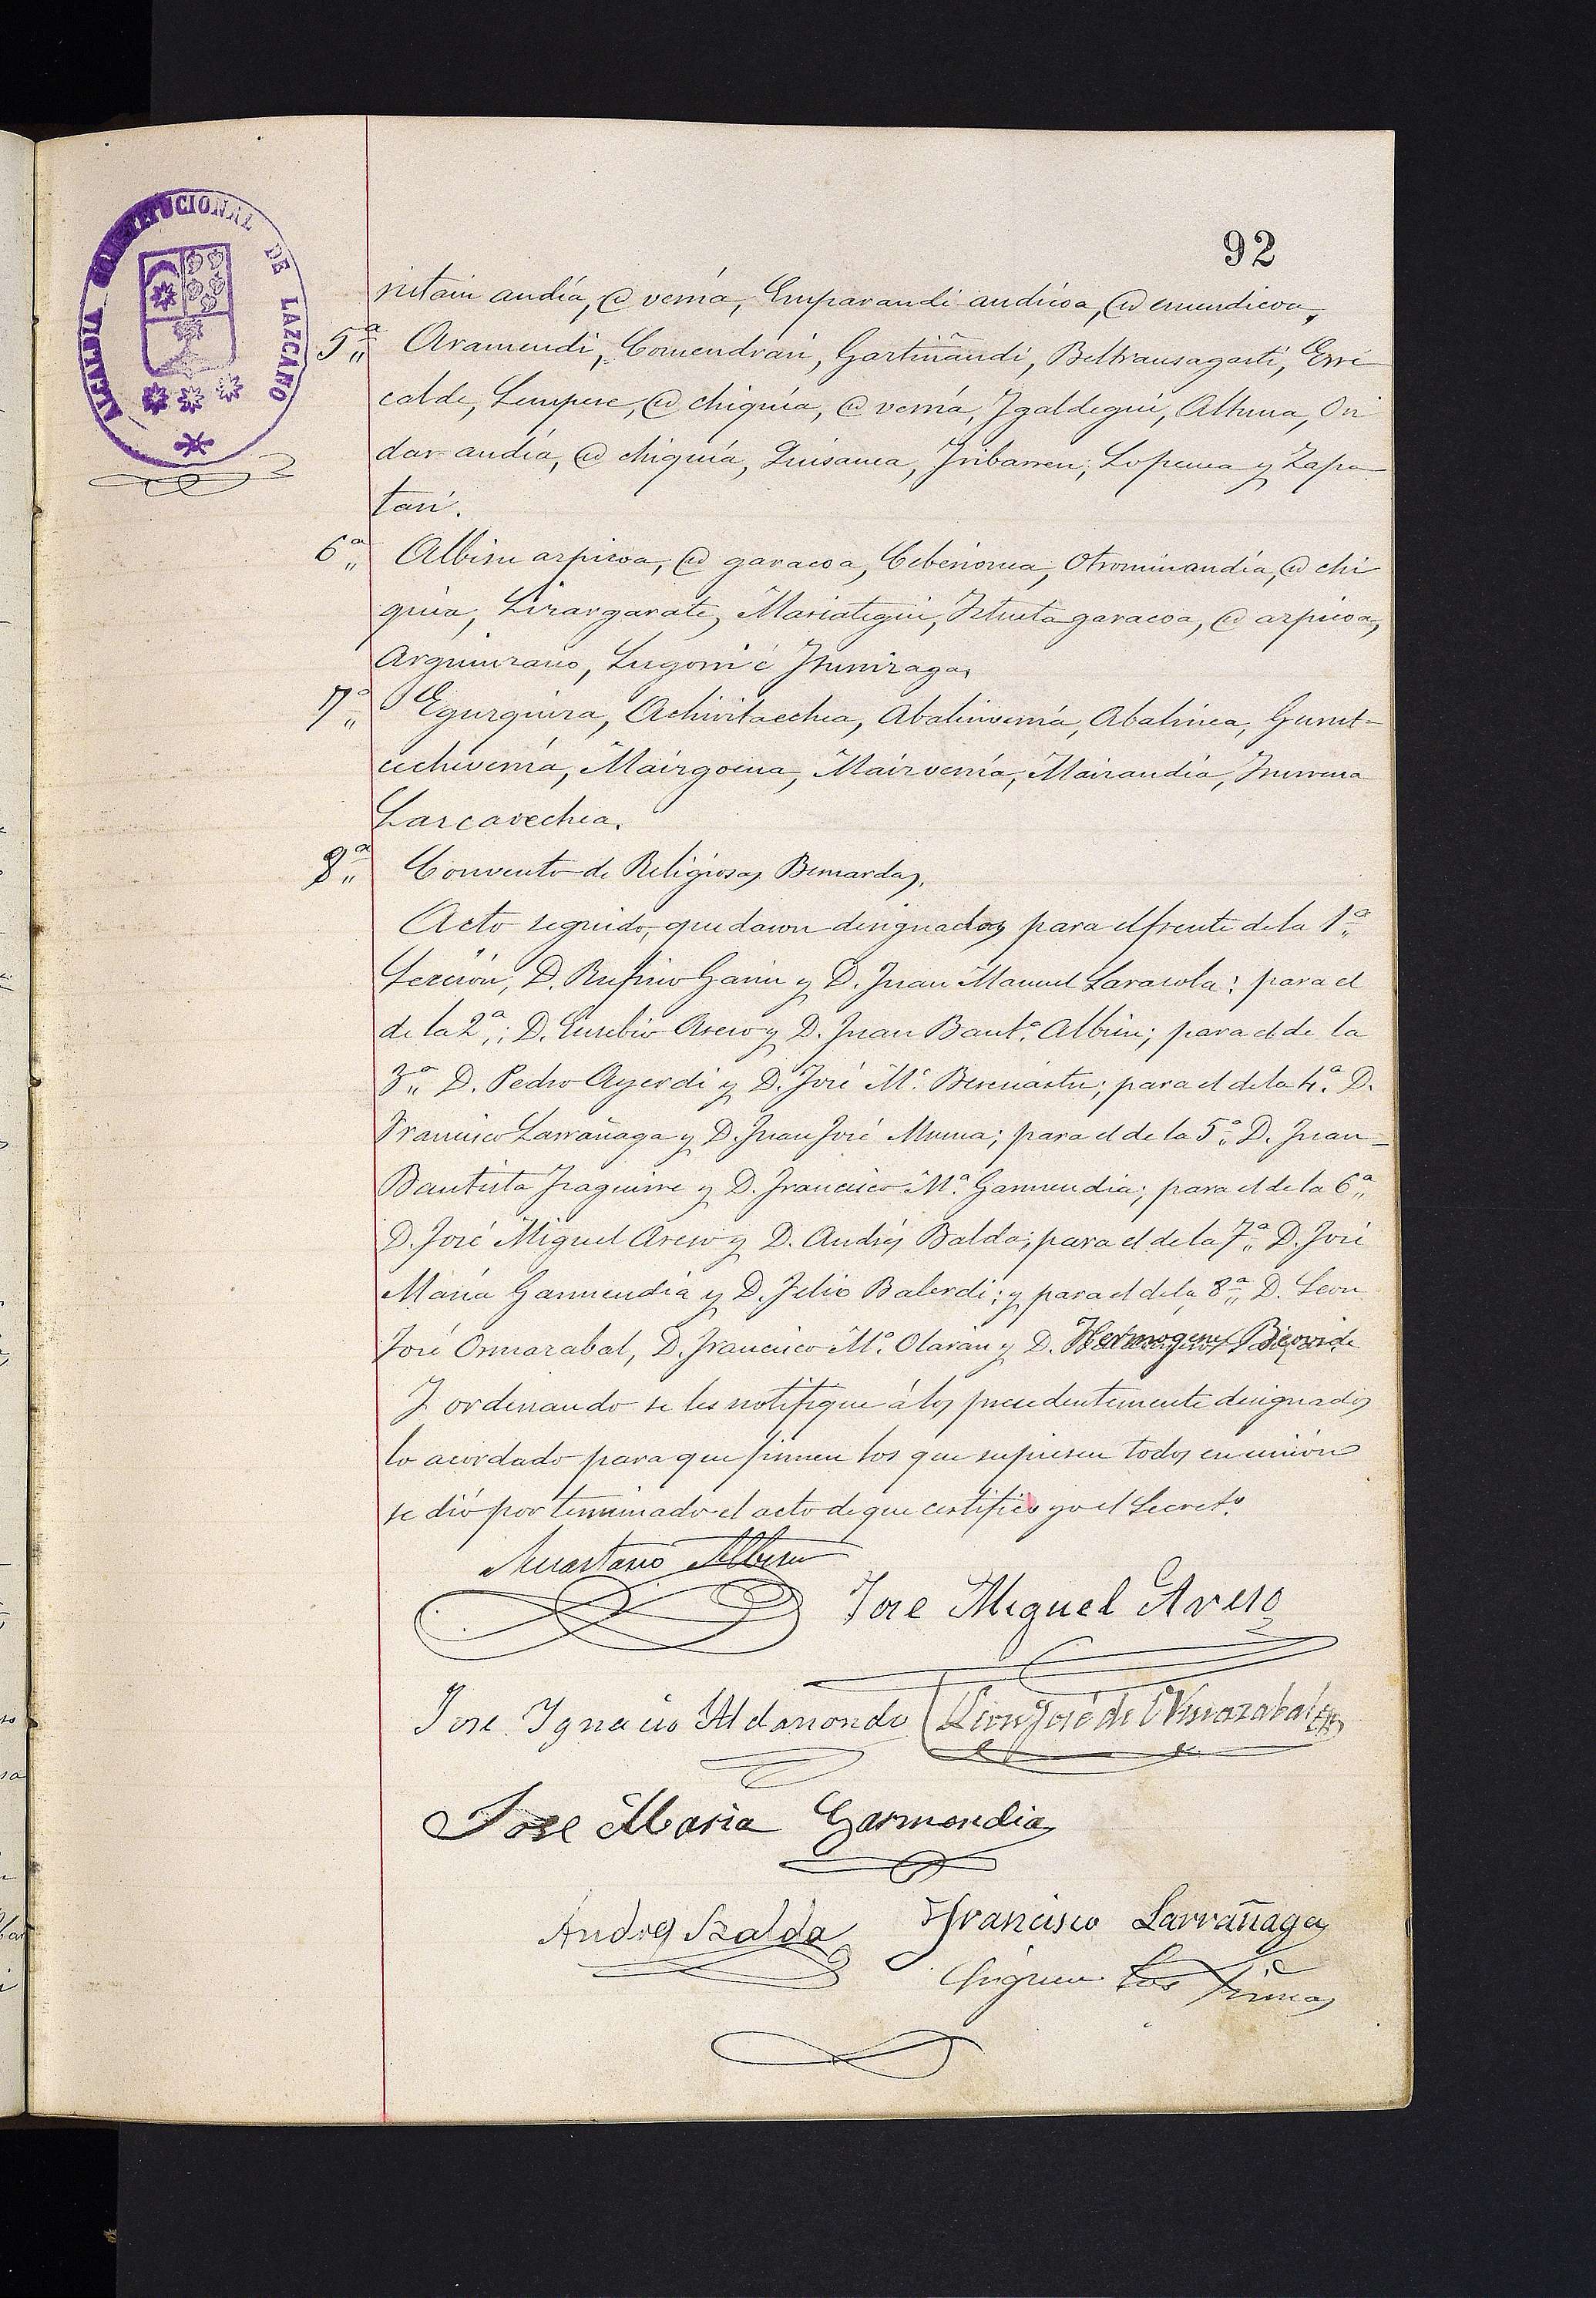 ALCALDIA CONSTITUCIONAL DE LAZCANO
92
andía, @ verria, Emparandi andicoa, @ ermendicoa,
5ª Aramendi, Comendrari, Gartinandi, Beltransagasti, Erre
calde, @ chiquia, @ verria, Igaldegui, Altuna, Ori
dar andia, @ chiquia, Iribarren, y Zapa
tari.
6ª Albisu azpicoa, @ garacoa, Otrominandia, @ chi
quia, Lizargarate, Mariategui, Iztueta garacoa, @ azpicoa,
Lugorri é
7ª Egurquiza, Abalinverria, Abalinea, Gurut-
cechiverria, Maizgoena, Maizverria, Maizandia,
Lazcavechea.
8ª Convento de Religiosas Bernardas.
Acto seguido, quedaron designados para el frente de la 1ª
Sección, D. Rufino Garin y D. Juan Manuel Larasola: para el
de la 2ª; D. Eusebio Areso y D. Juan Bautª Albisu; para el de la
3ª D. Pedro Ayerdi y D. José Mª para el de la 4ª D.
Francisco Larrañaga y D. Juan José Munua; para el de la 5ª D. Juan-
Bautista Izaguirre y D. Francisco Mª Garmendia; para el de la 6ª
D. José Miguel Areso y D. Andrés Balda; para el de la 7ª D. José
María Garmendia y D. Felix Balerdi; y para el de la 8ª D. Leon
José Ormazabal, D. Francisco Mª Olaran y D. Hermogenes
Y ordenando se les notifique á los precedentemente designados
lo acordado para que firmen los que supiesen todos en unión
se dió por terminado el acto de que certifico yo el Secretº
Anastasio Albisu
Jose Miguel Areso
Jose Ignacio Aldasoro Leon José de Ormazabal
Jose Maria Garmendia
Andres Balda Francisco Larrañaga
Siguen las firmas